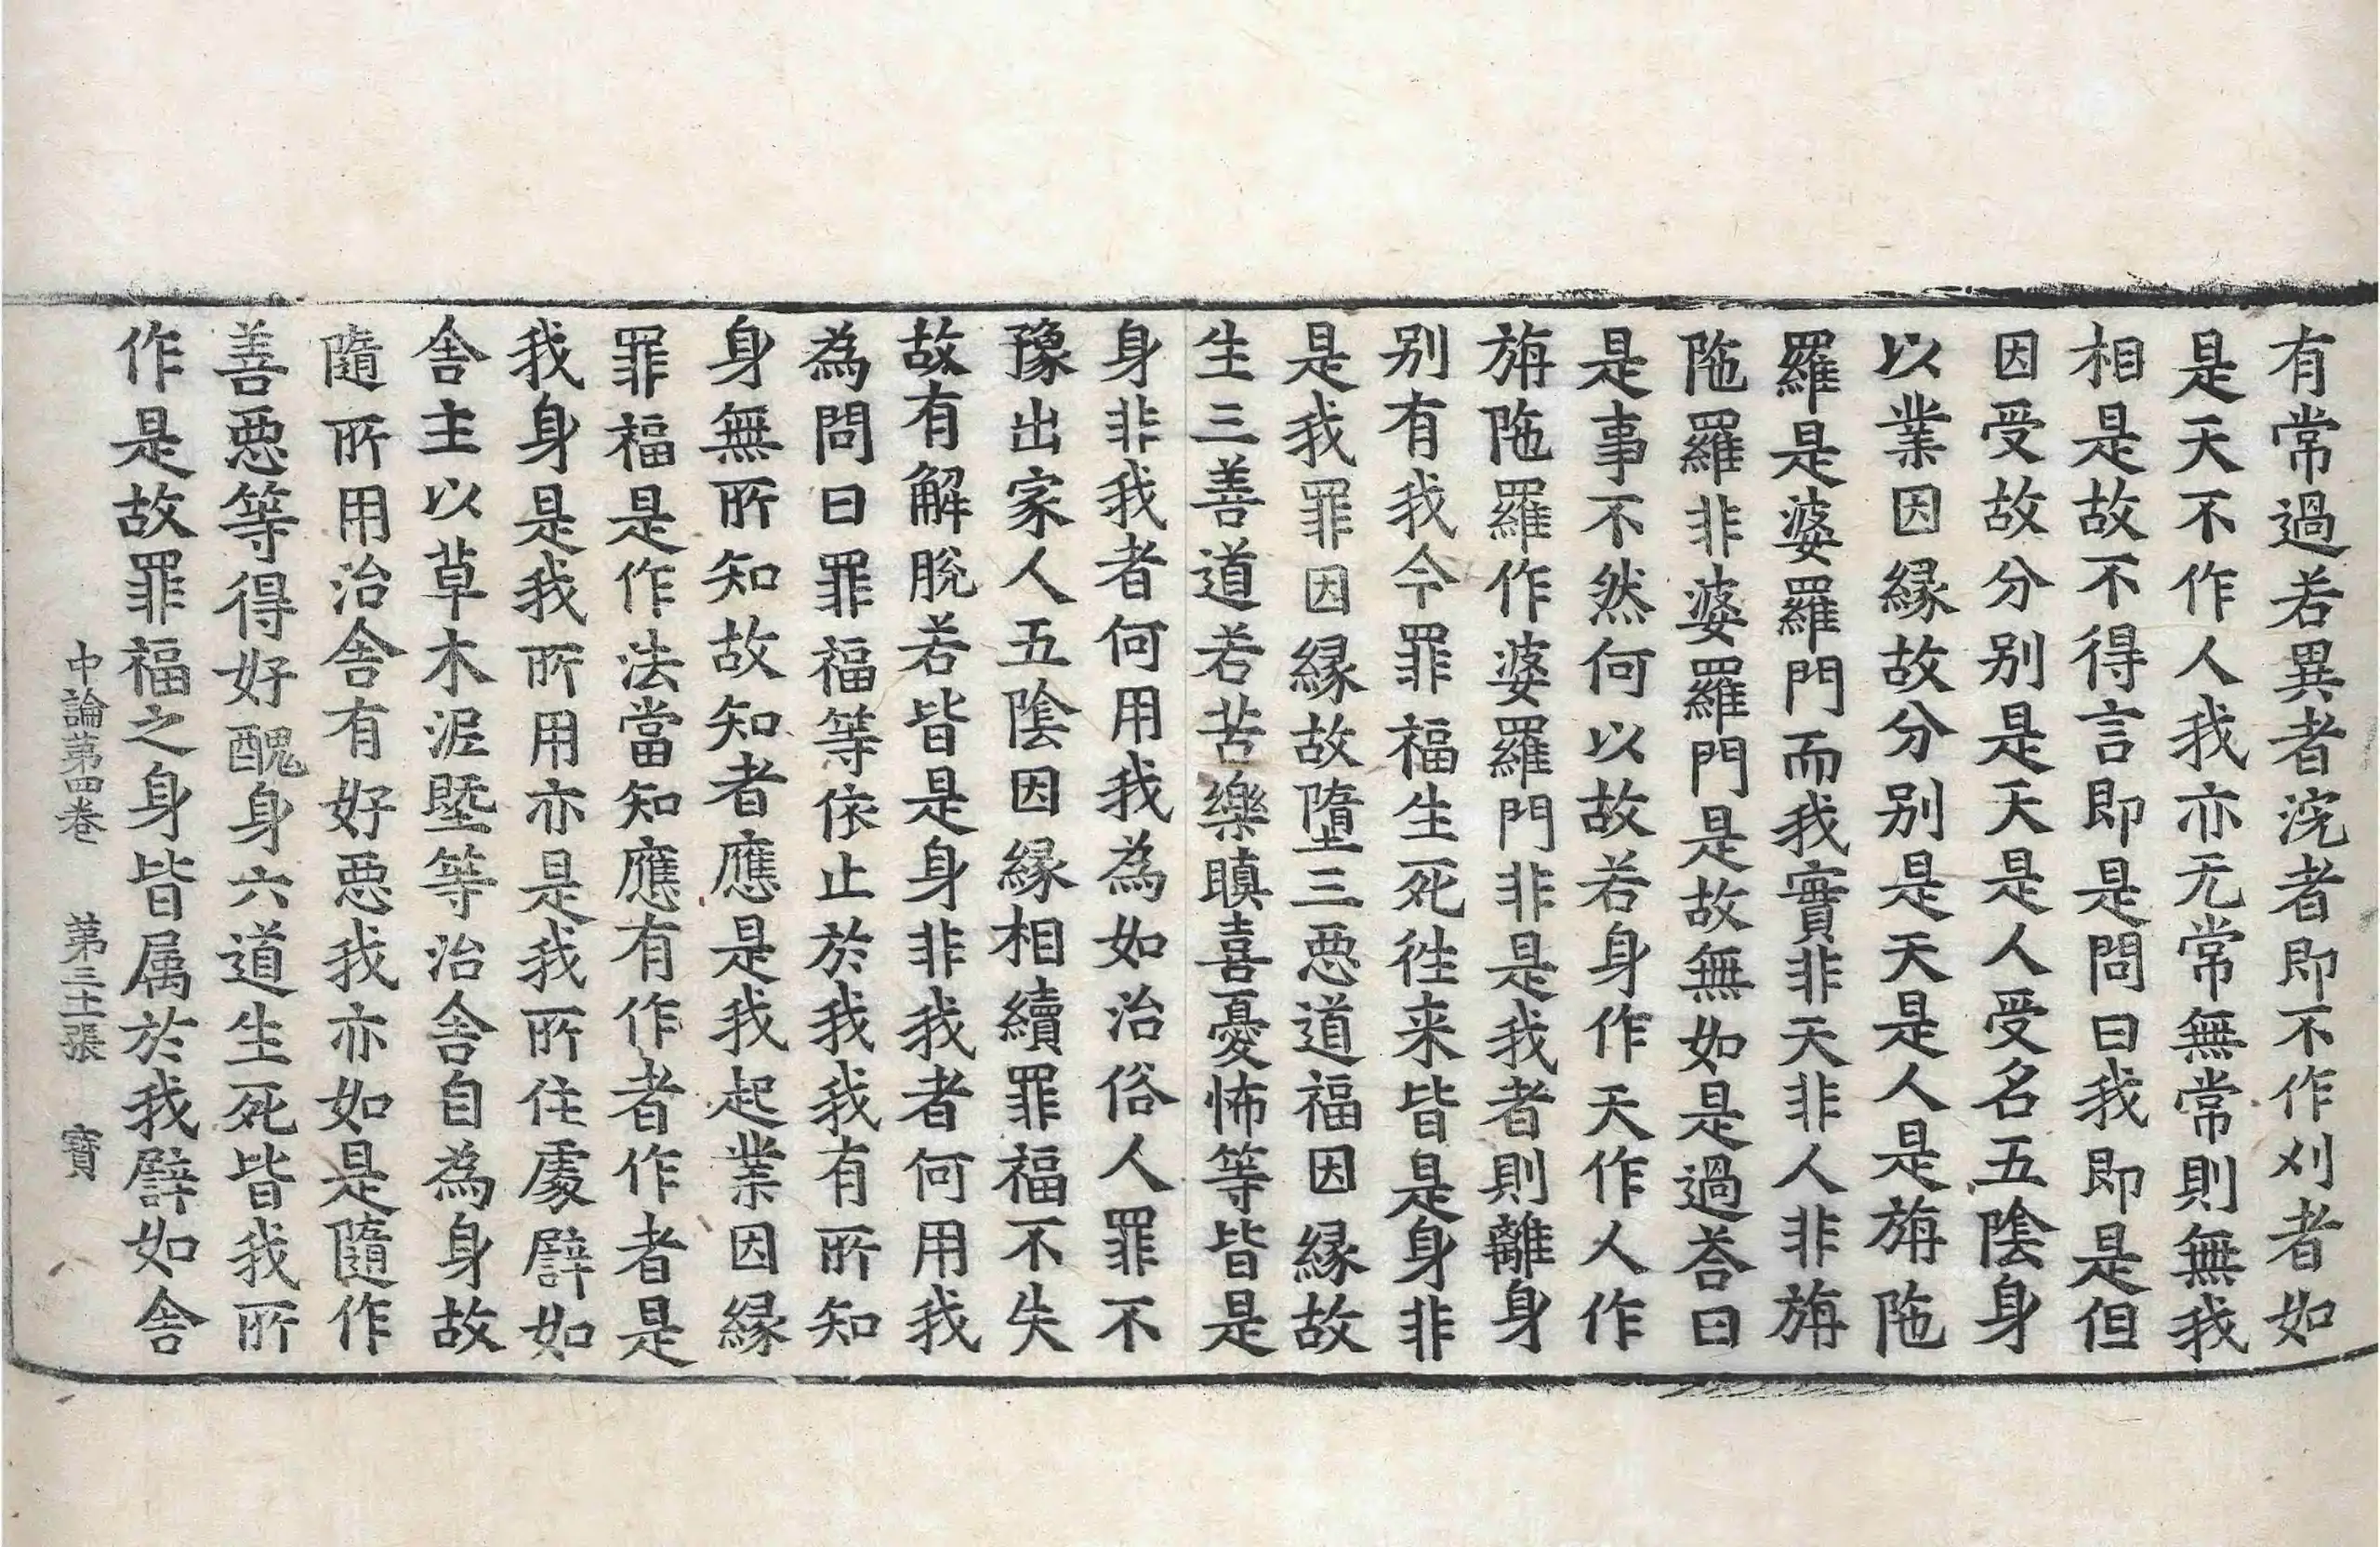 有常過若異者浣者即不作刈者如
是天不作人我亦无常無常則無我
相是故不得言即是問曰我即是但
因受故分别是天是人受名五陰身
以業因縁故分别是天是人是旃陁
羅是婆羅門而我實非天非人非旃
陁羅非婆羅門是故無如是過荅曰
是事不然何以故若身作天作人作
旃陁羅作婆羅門非是我者則離身
别有我今罪福生死徃来皆是身非
是我罪因縁故墮三惡道福因縁故
生三善道若苦樂瞋喜憂怖等皆是
身非我者何用我為如治俗人罪不
豫出家人五陰因縁相續罪福不失
故有解脫若皆是身非我者何用我
為問曰罪福等依止於我我有所知
身無所知故知者應是我起業因縁
罪福是作法當知應有作者作者是
我身是我所用亦是我所住處譬如
舍主以草木泥塈等治舍自為身故
隨所用治舍有好惡我亦如是隨作
善惡等得好醜身六道生死皆我所
作是故罪福之身皆属於我譬如舍
中論第四卷 第三十二張 寳